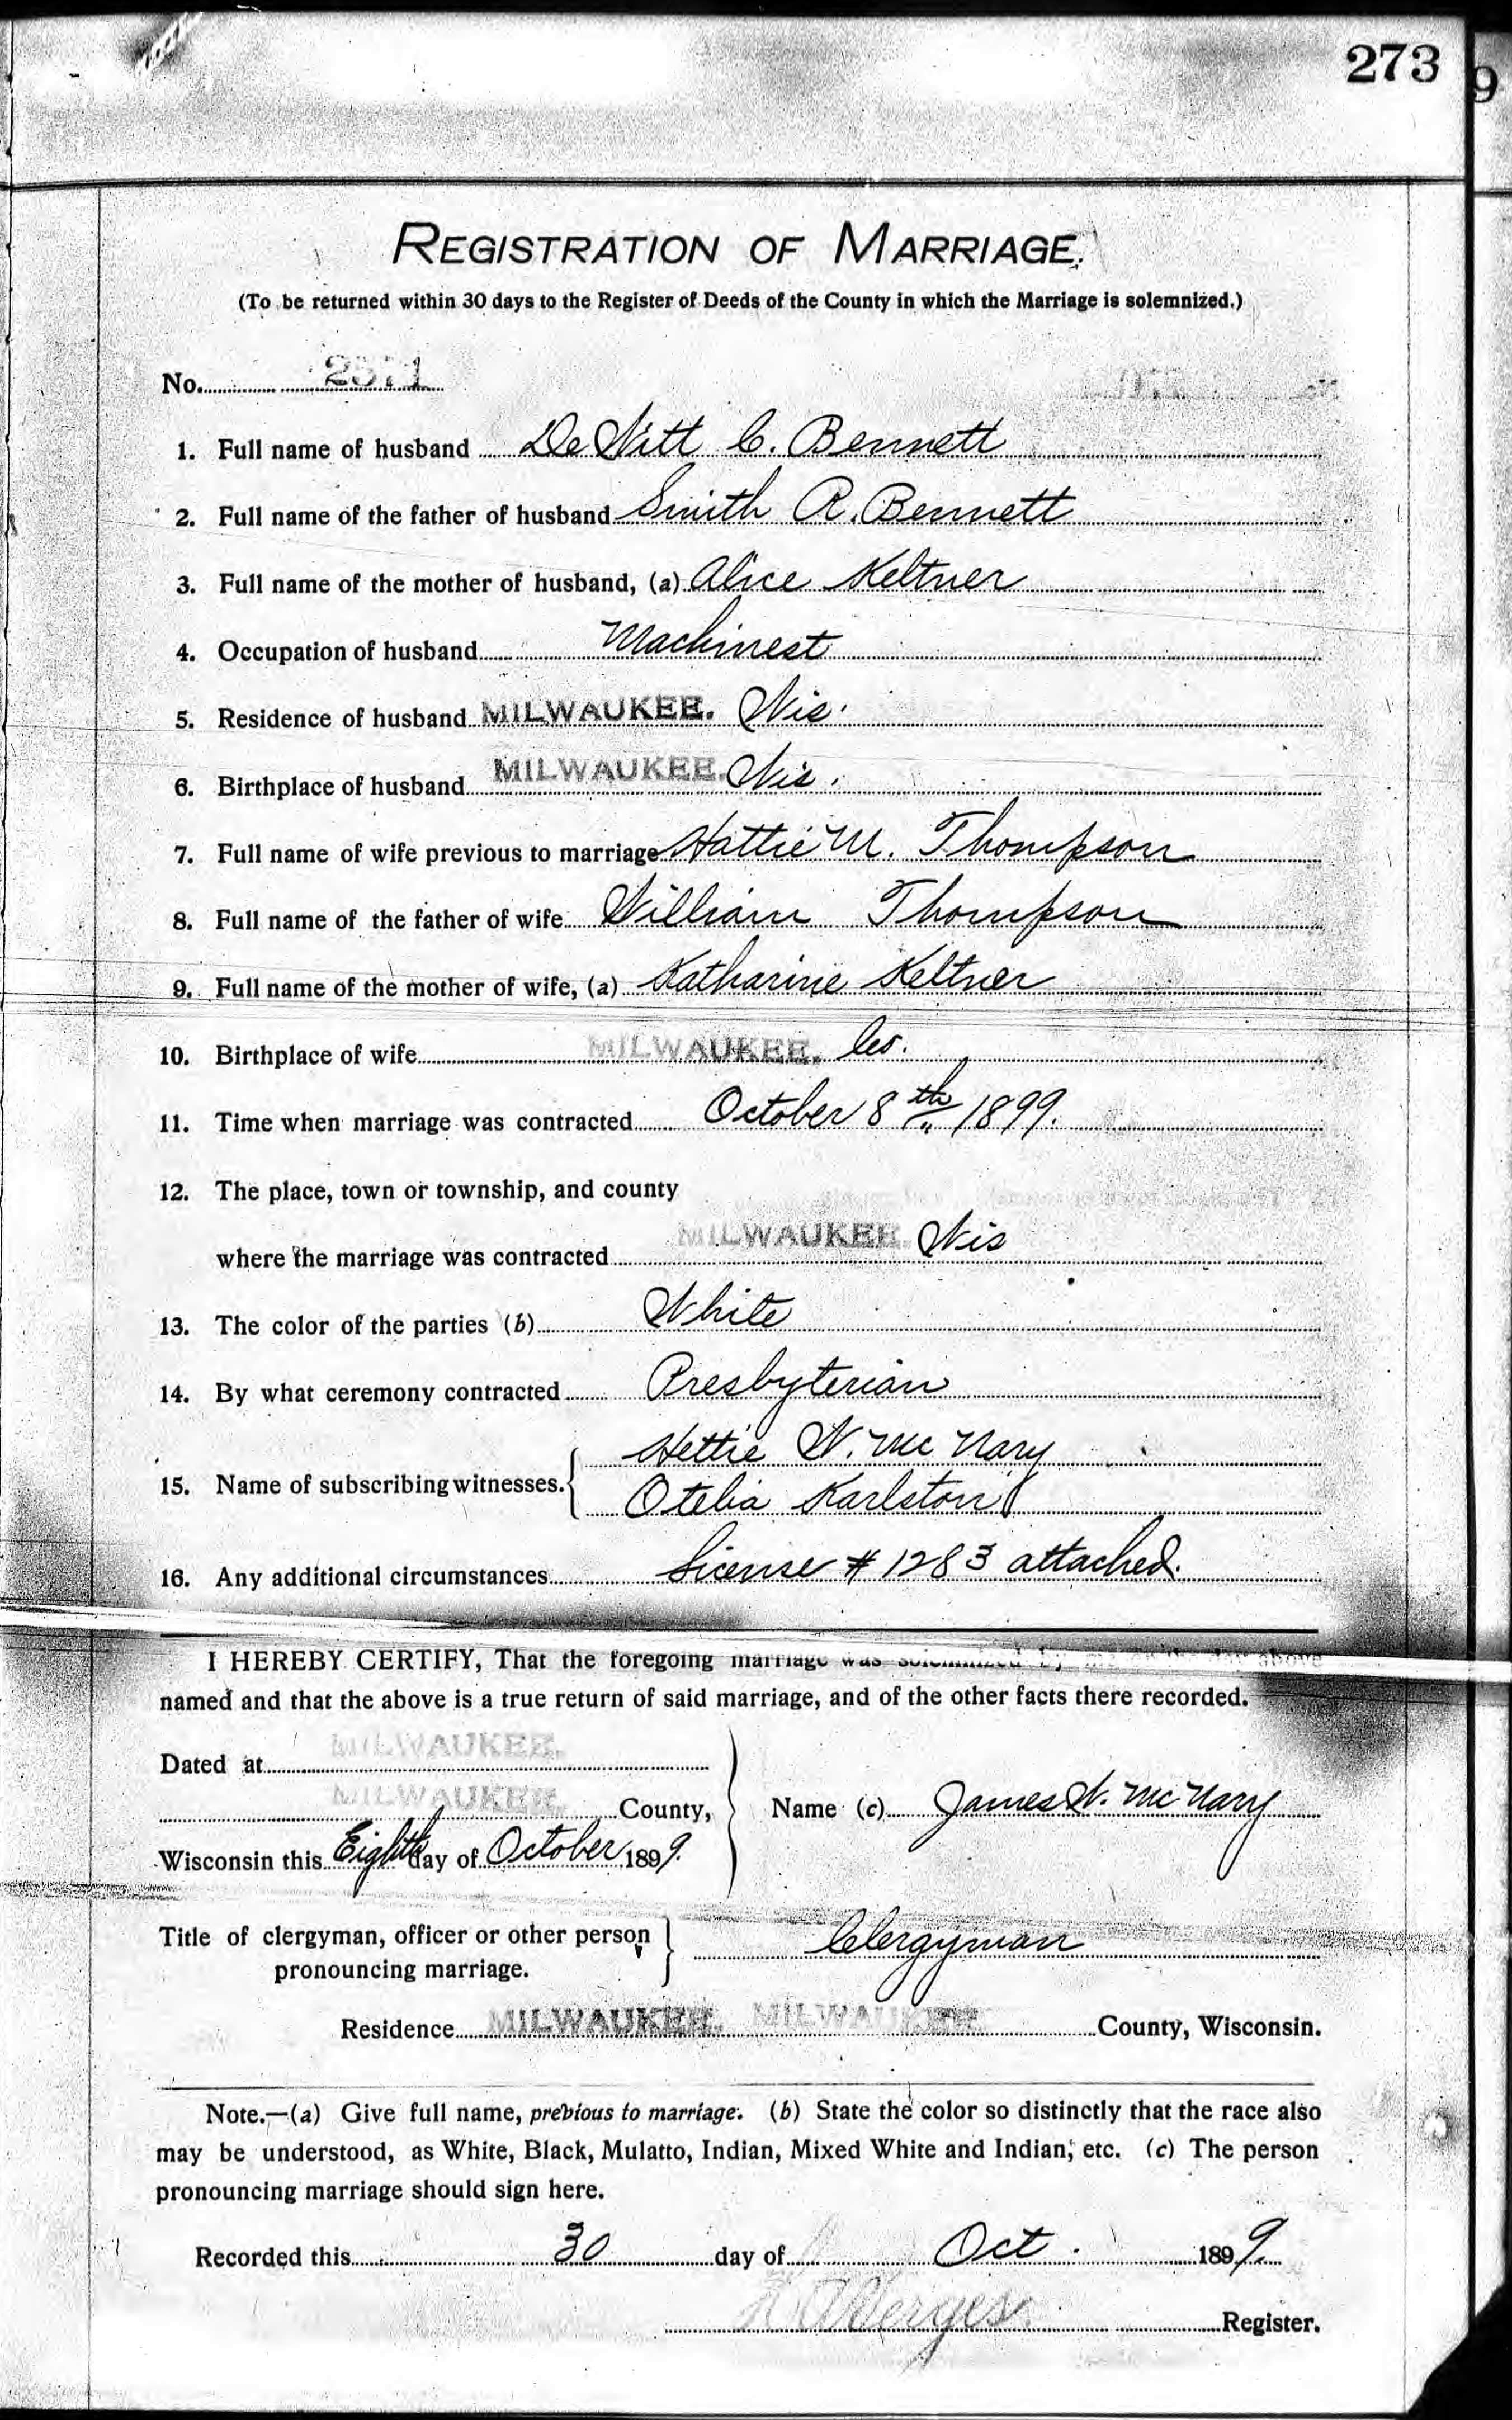 273
9
REGISTRATION OF MARRIAGE.
(To be returned within 30 days to the Register of Deeds of the County in which the Marriage is solemnized.)
No. 2571
1. Full name of husband De Witt C. Bennett
2. Full name of the father of husband Smith R. Bennett
3. Full name of the mother of husband, (a) Alice Keltner
4. Occupation of husband Machinest
5. Residence of husband MILWAUKEE. Wis.
6. Birthplace of husband MILWAUKEE. Wis.
7. Full name of wife previous to marriage Hattie M. Thompson
8. Full name of the father of wife William Thompson
9. Full name of the mother of wife, (a) Katharine Keltner
10. Birthplace of wife MILWAUKEE. Co.
11. Time when marriage was contracted October 8th 1899.
12. The place, town or township, and county
where the marriage was contracted MILWAUKEE Wis
13. The color of the parties (b) White
14. By what ceremony contracted Presbyterian
Hettie W. McNary
15. Name of subscribing witnesses. Otelia Karlston
16. Any additional circumstances License # 1283 attached.
I HEREBY CERTIFY, That the foregoing marriage was solemnized by above
named and that the above is a true return of said marriage, and of the other facts there recorded.
Dated at MILWAUKEE.
MILWAUKEE. County, Name (c) James W. McNary
Wisconsin this Eighth day of October 1899.
Title of clergyman, officer or other person Clergyman
pronouncing marriage.
Residence MILWAUKEE. MILWAUKEE County, Wisconsin.
Note.—(a) Give full name, previous to marriage. (b) State the color so distinctly that the race also
may be understood, as White, Black, Mulatto, Indian, Mixed White and Indian, etc. (c) The person
pronouncing marriage should sign here.
Recorded this 30 day of Oct. 1899.
Register.